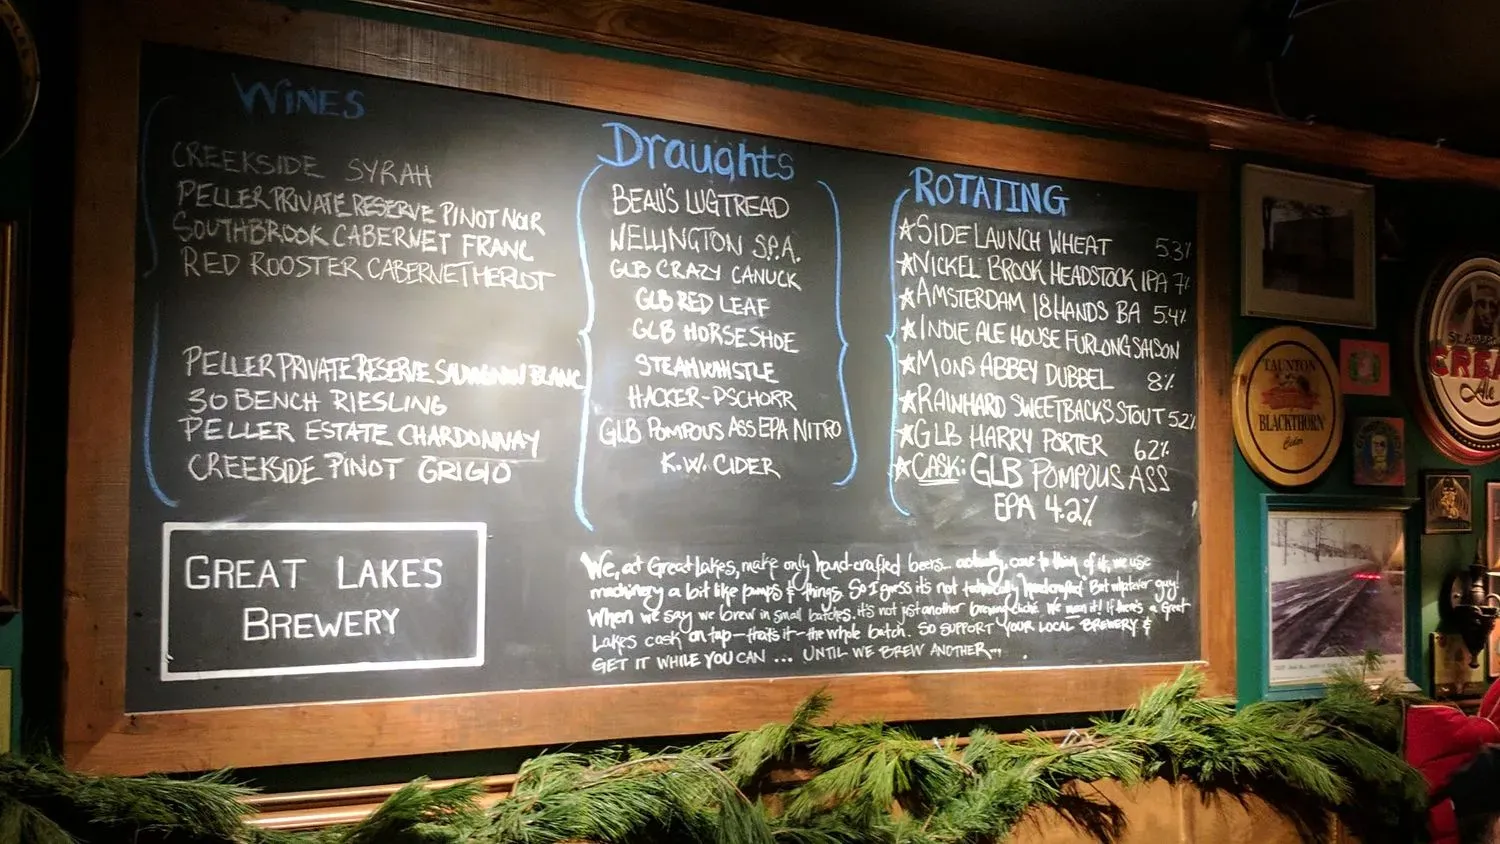 WINES
CREEKSIDE SYRAH
PELLER PRIVATE RESERVE PINOT NOIR
SOUTHBROOK CABERNET FRANC
RED ROOSTER CABERNET MERLOT
PELLER PRIVATE RESERVE SAUVIGNON BLANC
30 BENCH RIESLING
PELLER ESTATE CHARDONNAY
CREEKSIDE PINOT GRIGIO
GREAT LAKES
BREWERY
Draughts
BEAU'S LUGTREAD
WELLINGTON S.P.A.
GLB CRAZY CANUCK
GLB RED LEAF
GLB HORSESHOE
STEAMWHISTLE
HACKER-PSCHORR
GLB POMPOUS ASS EPA NITRO
K.W. CIDER
ROTATING
★SIDE LAUNCH WHEAT 5.3%
★NICKEL BROOK HEADSTOCK IPA 7%
★AMSTERDAM 18 HANDS BA 5.4%
★INDIE ALE HOUSE FURLONG SAISON
★MONS ABBEY DUBBEL 8%
★RAINHARD SWEETBACK'S STOUT 5.2%
★GLB HARRY PORTER 6.2%
★CASK: GLB POMPOUS ASS
EPA 4.2%
We, at Great Lakes, make only hand-crafted beers... actually, come to think of it, we use
machinery a bit like pumps & things. So I guess it's not technically handcrafted. But whatever guy!
When we say we brew in small batches, it's not just another brewing cliché. We mean it! If there's a Great
Lakes cask on tap—that's it—the whole batch. SO SUPPORT YOUR LOCAL BREWERY &
GET IT WHILE YOU CAN ... UNTIL WE BREW ANOTHER...
TAUNTON
BLACKTHORN
Cider
CREA
Ale